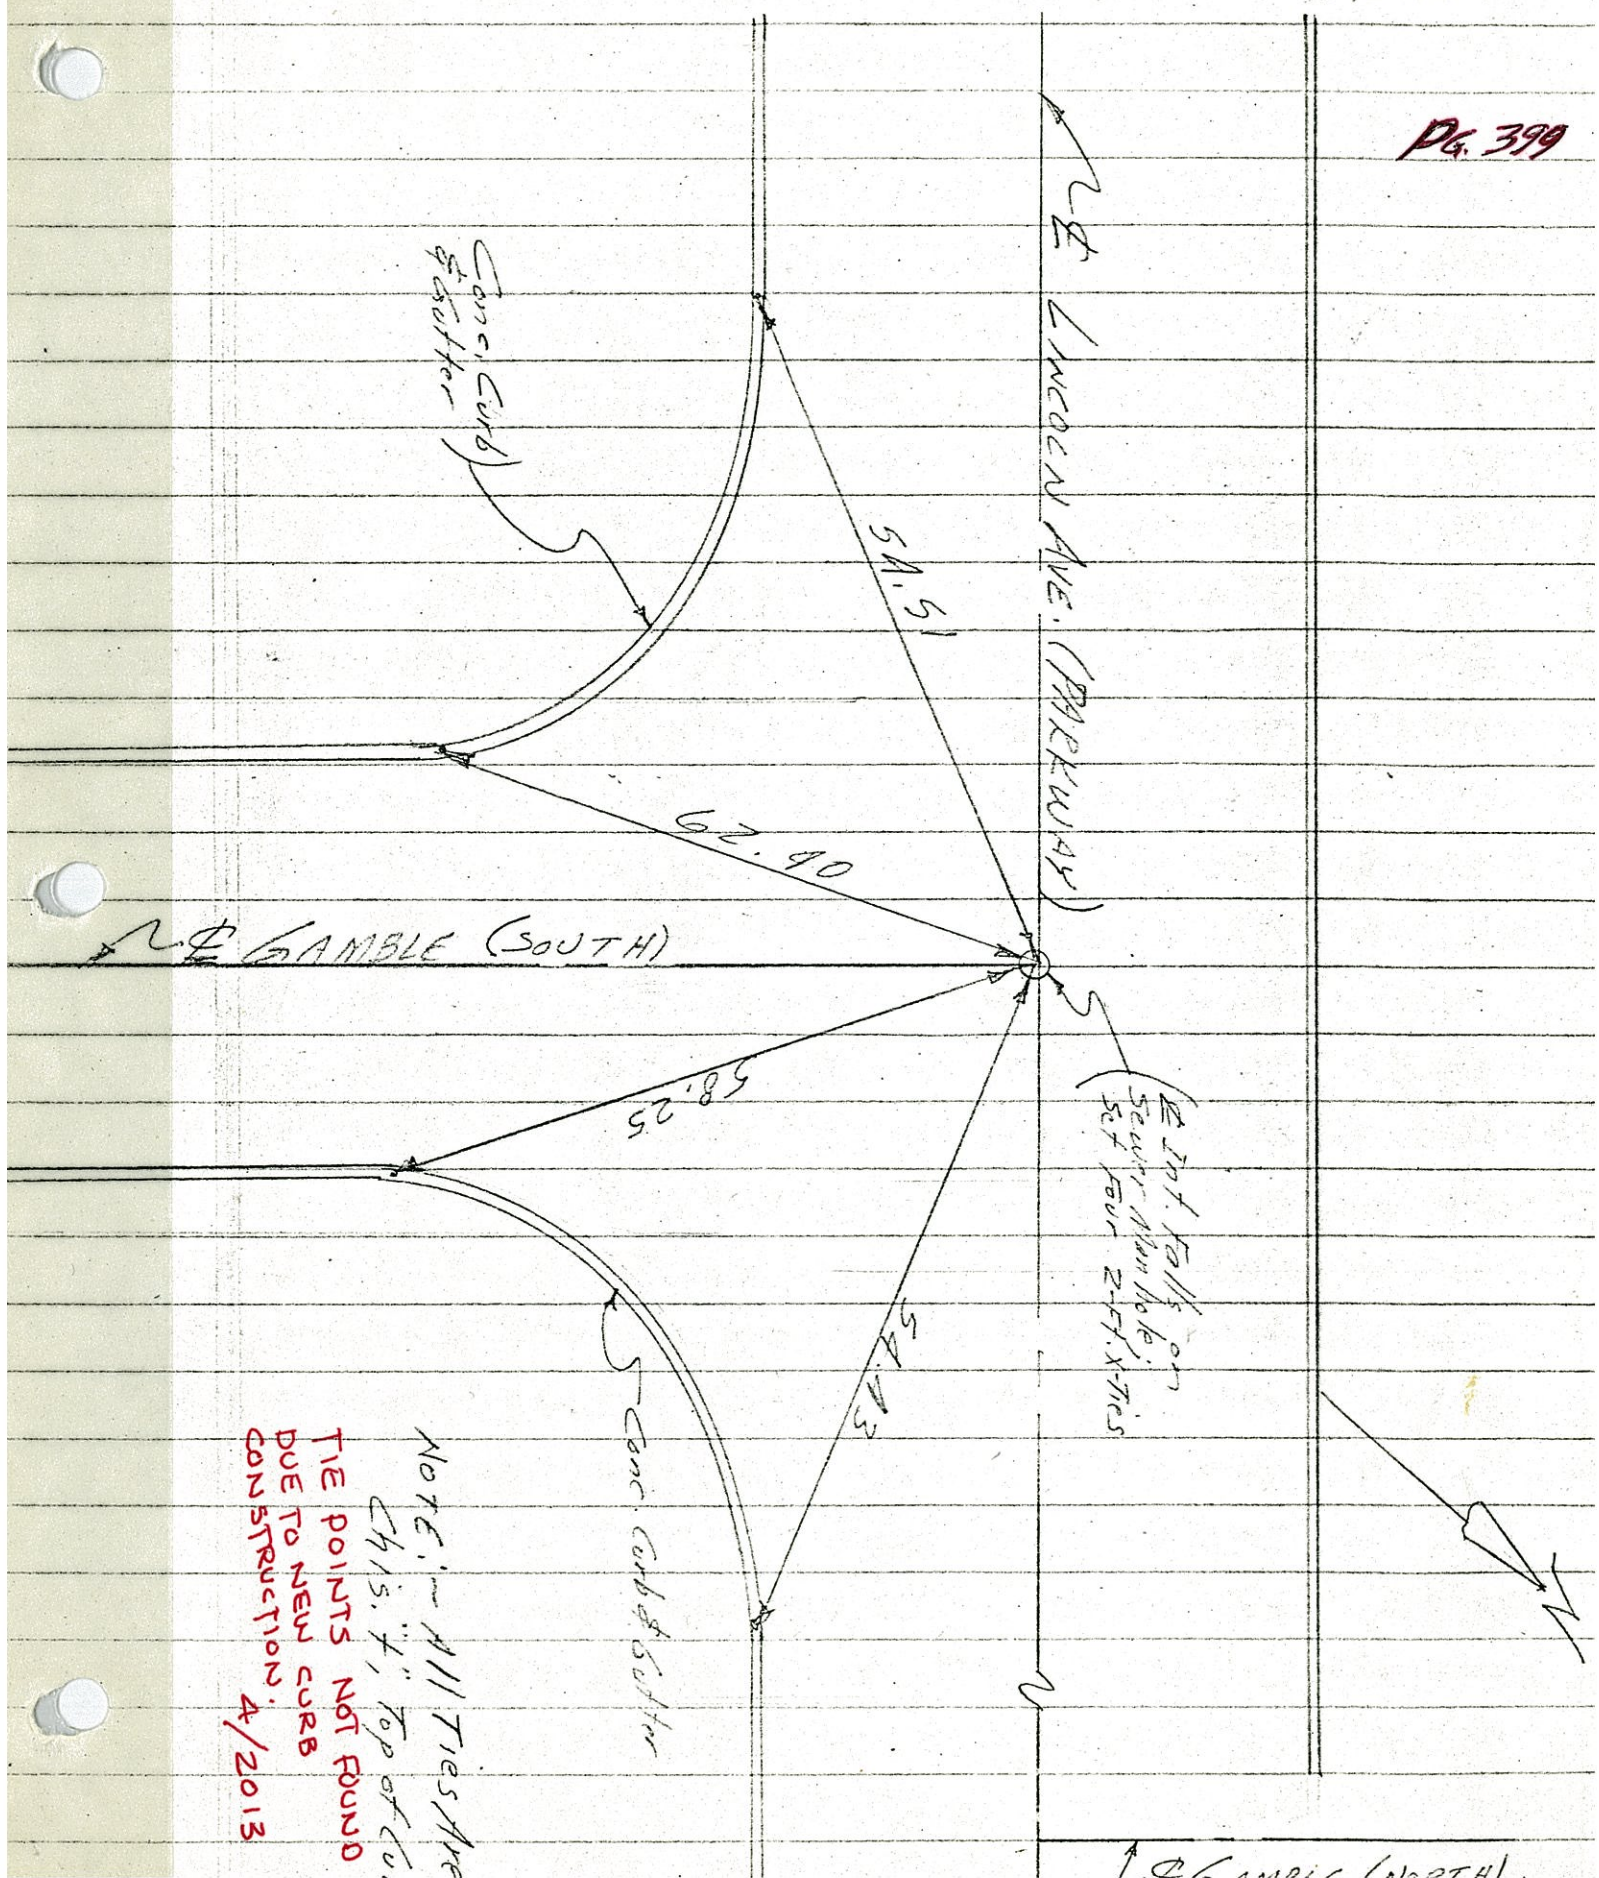 PG. 399
℄ LINCOLN AVE. (PARKWAY)
Conc. Curb
& Gutter
54.51
62.40
℄ GAMBLE (SOUTH)
58.25
54.43
℄ Int. Falls on
Sewer Manhole;
Set Four 2-Ft. X-Ties
Conc. Curb & Gutter
NOTE:- All Ties Are
Chis. "+", Top of
TIE POINTS NOT FOUND
DUE TO NEW CURB
CONSTRUCTION. 4/2013
N
℄ GAMBLE (NORTH)